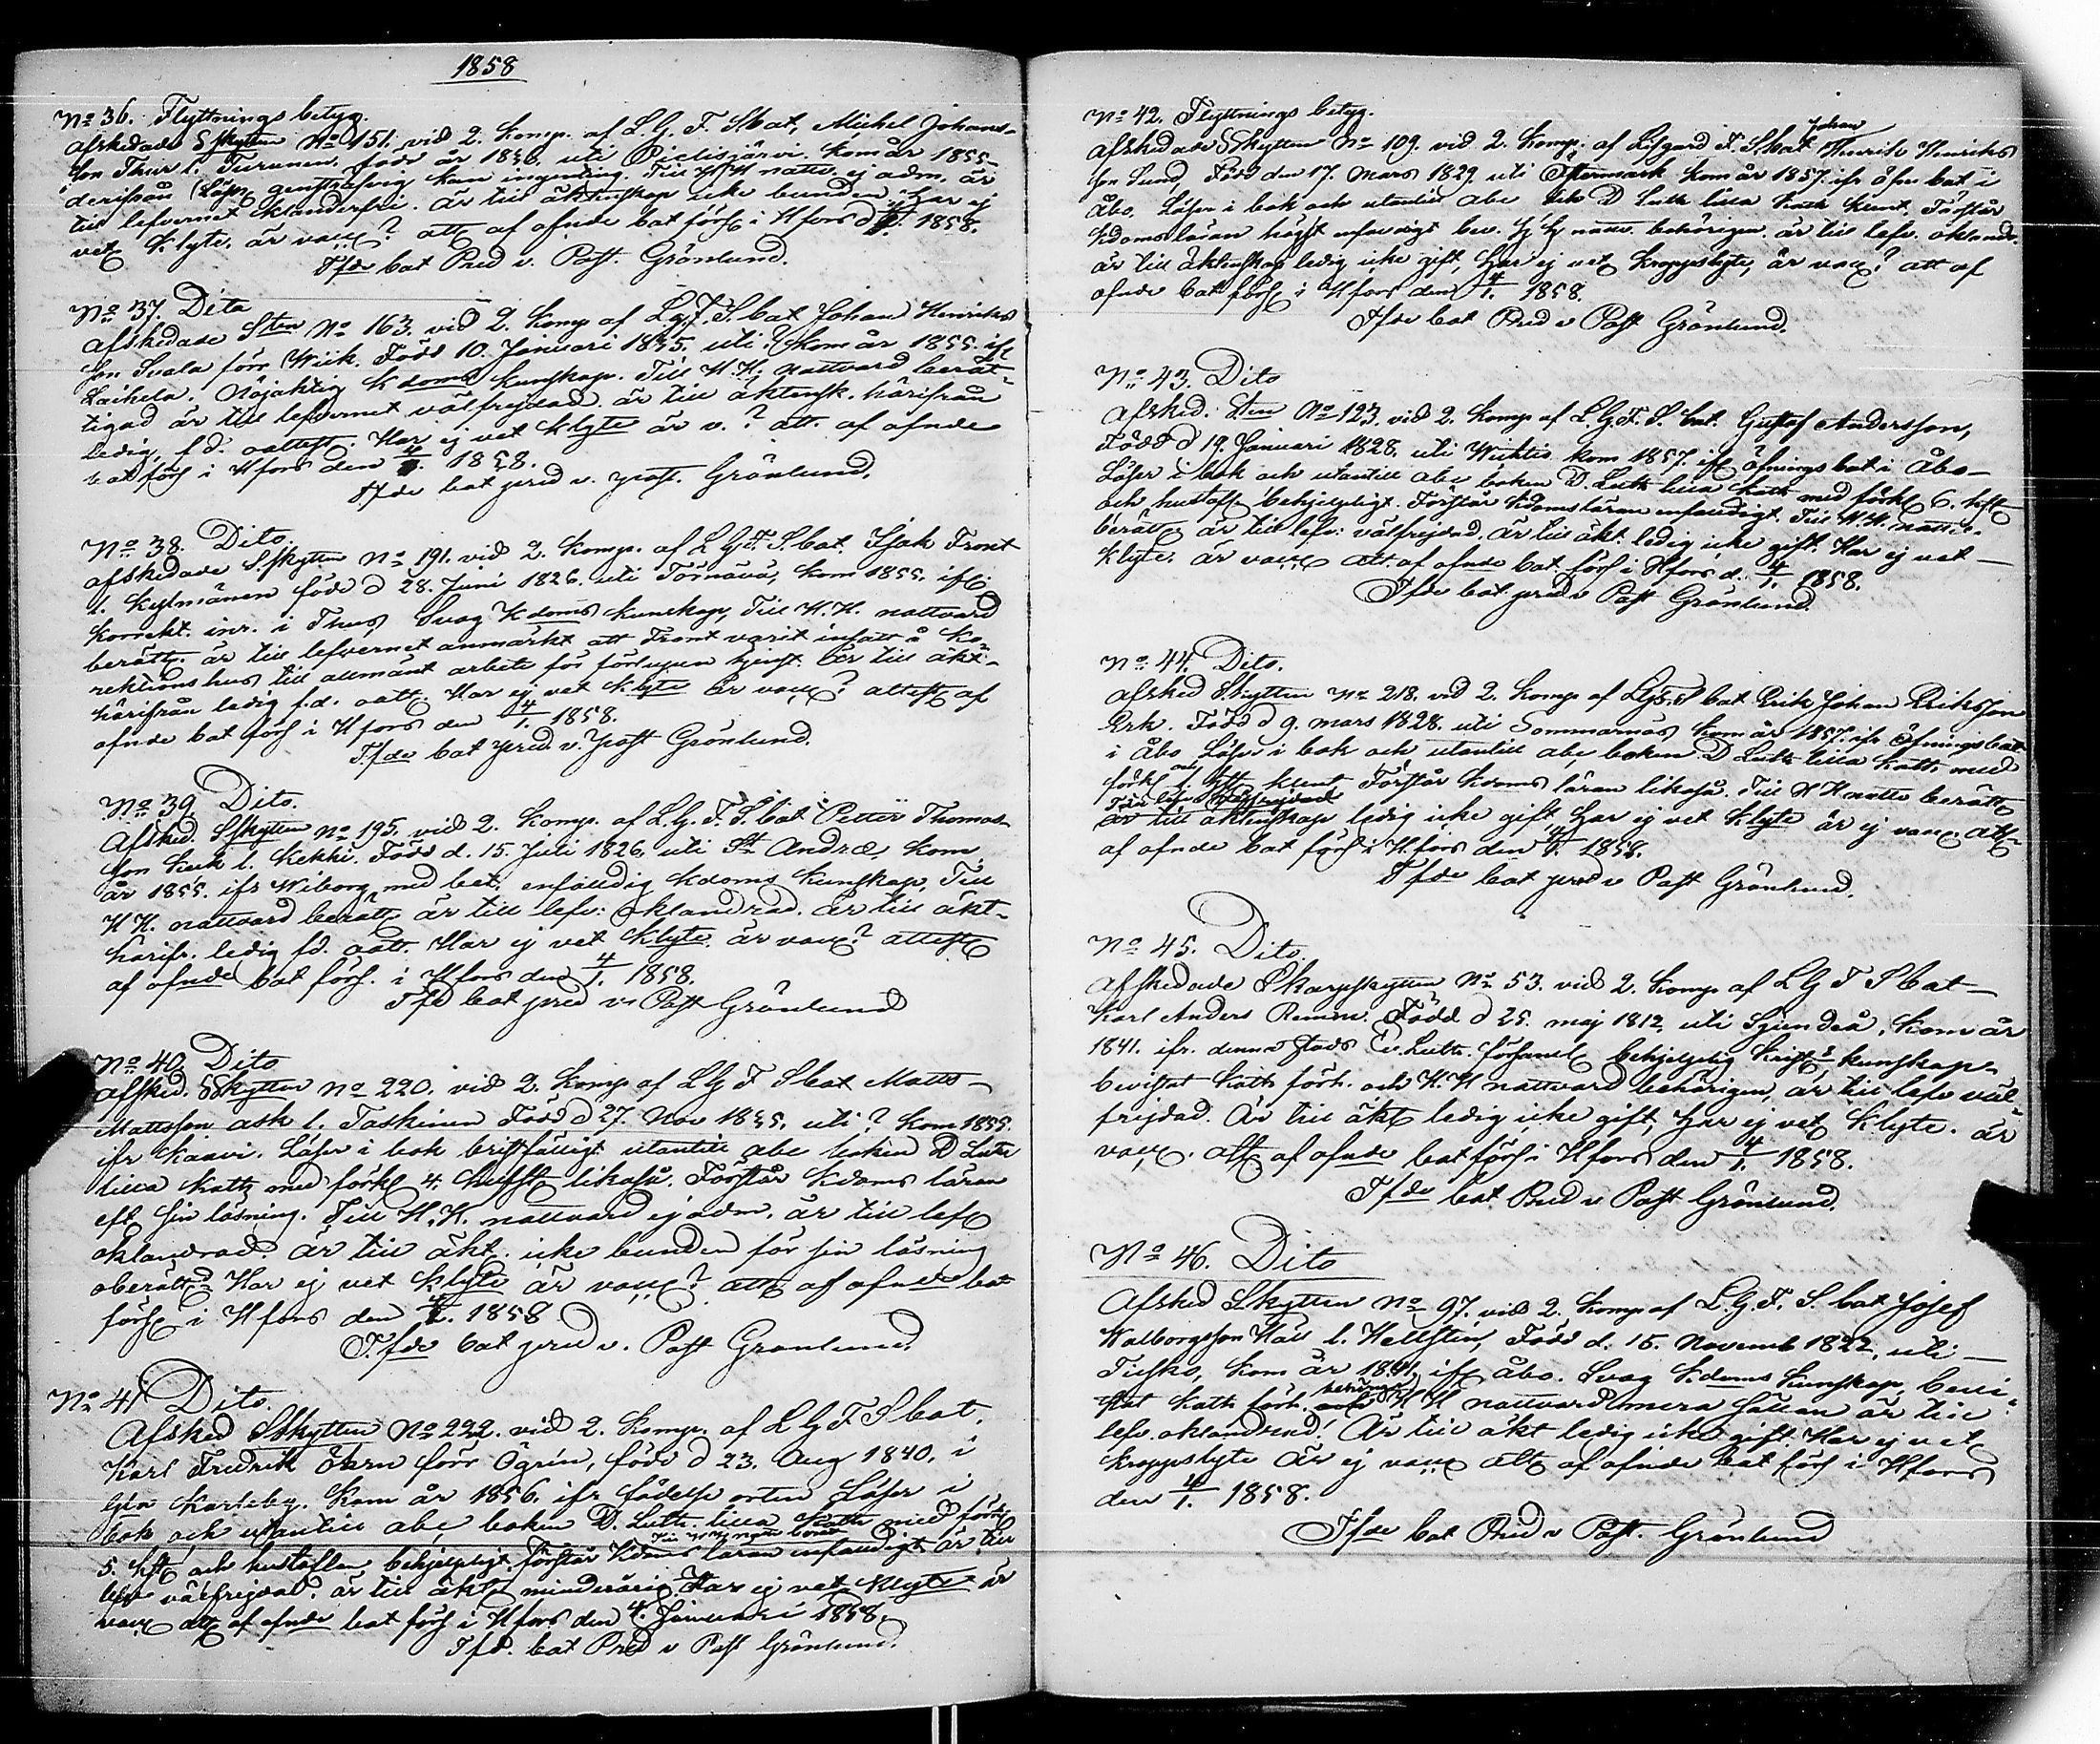 1858
No 36. Flyttnings betyg.
afskedade Sskytten No 151. vid 2. Komp. af L. G. F. Sbat, Mickel Johans-
son Thur l. Turunen, född år 1836. uti Pielisjärvi. Kom år 1855-
derifrån läsn. gensträfvig kan ingenting. Till HH nattv. ej adm. är
till lefvernet klanderfri. är till äktenskap icke bunden. Har ej
vet. K.lyte. är vacc? att af ofnde bat förs i Hfors d 4/1. 1858.
Tfde bat Pred v. Past. Grönlund.
No 37. Dito
afskedade Sten No 163. vid 2. Komp af L.G.F. S.bat Johan Henriks
son Svala förr Wiik. Född 10. Januari 1835. uti? Kom år 1855. ifr
Laihela. Nöjaktig Kdoms kunskap. Till H.H. nattvard berät-
tigad är till lefvernet välfrejdad är till äktensk. härifrån
ledig, f.d. oattest. Har ej vet klyte är v.? att. af ofnde
bat förs i Hfors den 4/1. 1858.
Tfde bat pred v. past. Grönlund.
No 38. Dito.
afskedade S.skytten No 191. vid 2. Komp. af L G F. S.bat. Isak Front
l. Kylmänen född d 28. Juni 1826. uti Törnävä, kom 1855. ifr
korrekt. inr. i Thus, Svag Kdoms kunskap, Till H.H. nattvard
berätt. är till lefvernet anmärkt att Front varit insatt å Ko-
rektionshus till allmänt arbete för förlupen tjenst. är till äkt-
härifrån ledig f.d. oatt. Har ej vet klyte är vacc? attest af
ofnde bat förs i Hfors den 4/1. 1858.
Tfde bat pred. v. past Grönlund.
No 39. Dito.
Afsked. Sskytten No 195. vid 2. Komp. af L.G.F. S.bat Petter Thomas-
son Kek l. Kekki. Född d. 15. Juli 1826. uti St Andræ, kom
år 1855. ifr Wiborg med bet. enfaldig Kdoms kunskap, Till
H H. nattvard berätt. är till lefv: oklandrad. är till äkt-
härifr. ledig fd. oatt. Har ej vet klyte. är vacc? attest
af ofnde bat förs. i Hfors den 4/1. 1858.
Tfd bat pred v. Past Grönlund
No 40. Dito
afsked. SSkytten No 220. vid 2. Komp af L G F Sbat Matts-
Mattsson Ask l. Taskinen Född d 27. Nov 1835. uti? Kom 1855.
ifr Kaavi. Läser i bok bristfälligt utantill abc boken D Luth
lilla Kattk med förkl 4. hufst likaså. Förstår Kdoms läran
eft sin läsning. Till H.H. nattvard ej adm. är till lefv
oklandrad. är till äkt. icke bunden för sin läsning
oberätt. Har ej vet klyte är vacc? att af ofnde bat
förs i Hfors den 4/1. 1858
Tfde bat pred v. Past Grönlund.
No 41 Dito.
Afsked Sskytten No 222. vid 2. Komp. af L G F S bat.
Karl Fredrik Öhrn förr Ögrén, född d 23. Aug 1840. i
Gla Karleby. Kom år 1856. ifr födelse orten Läser i
bok och utantill abc boken D. Luth. lilla Kattk med förkl
5. hft och hustaflan behjelpligt. förstår Kdoms läran enfaldigt är till
lefv välfrejdad. är till äkt minderårig. Har ej vet klyte är
vacc att af ofnde bat förs i Hfors den 4. Januari 1858.
Tfd. bat Pred v Past Grönlund.
No 42. Flyttnings betyg.
Johan
afskedade SSkytten No 109. vid 2. Komp. af Lifgard F. S.bat Henrik Henriks
son Sund Född den 17. Mars 1829. uti Östermark kom år 1857. ifr öfn bat i
Åbo. Läser i bok och utantill abc D Luth lilla Kattk klent. Förstår
Kdoms läran högst enfaldigt bev. H H nattv. behörigen. är till lefv. oklandr.
är till äktenskap ledig icke gift, Har ej vet kroppslyte, är vacc? att af
ofnde bat förs i Hfors den 4/1. 1858.
Tfde bat Pred v Past Grönlund.
No 43. Dito
Afsked. Sten No 123. vid 2. Komp af L.G.F. S. bat. Gustaf Andersson,
Född d 19. Januari 1828. uti Wichtis kom 1857. ifr öfnings bat i Åbo-
Läser i bok och utantill abc boken D. Luth lilla Kattk med förkl 6. hft
och hustafl behjelpligt. Förstår Kdoms läran enfaldigt. Till H.H. nattv.
berätt. är till lefv: välfrejdad. är till äkt. ledig icke gift. Har ej vet-
klyte. är vacc att. af ofnde bat förs i Hfors d. 4/1. 1858.
Tfde bat pred v Past Grönlund.
No 44. Dito.
afsked Skytten No 218. vid 2. Komp af LGF. S bat Erik Johan Eriksson
Erk. Född d 9. mars 1828. uti Sommarnäs kom år 1857. ifr Öfningsbat
i Åbo Läser i bok och utantill abc boken D Luth lilla Kattk med
förkl och hft klent Förstår Kdoms läran likaså. Till H H nattv berätt
är till lefv välfrejdad
är till äktenskap ledig icke gift Har ej vet klyte är ej vacc. att
af ofnde bat förs i Hfors den 4/1. 1858.
Tfde bat pred v Past Grönlund.
No 45. Dito.
afskedade Skarpskytten No 53. vid 2. Komp af L G F S bat-
Karl Anders Remm. Född d 25. maj 1812 uti Sjundeå. Kom år
1841. ifr. denna stads Ev. Luth. församl behjelplig krist. kunskap-
bevistat kattk förh. och H.H nattvard behörigen, är till lefv väl
frejdad. Är till äkt ledig icke gift, Har ej vet klyte. är
vacc. att af ofnde bat förs i Hfors den 4/1. 1858.
Tfde bat Pred v Past Grönlund.
No 46. Dito
Afsked Skytten No 97. vid 2. Komp af L.G.F. S. bat Josef
Walborgsson Häll l. Hellstén, Född d. 15. Novemb 1822, uti-
Tusko, kom år 1841. ifr Åbo. Svag Kdoms kunskap, bevi-
behörigen
stat kattk förh. och H H nattvard mera sällan är till
lefv. oklandrad. Är till äkt ledig icke gift. Har ej vet
kroppslyte är ej vacc att af ofnde bat förs i Hfors
den 4/1. 1858.
Tfde bat Pred v Past. Grönlund